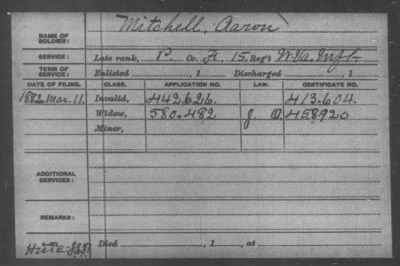 NAME OF SOLDIER: Mitchell, Aaron
SERVICE: Late rank, P. Co. 15 Reg't W.Va. Inf.
TERM OF SERVICE: Enlisted , 1 Discharged , 1
DATE OF FILING. CLASS. APPLICATION NO. LAW. CERTIFICATE NO.
1882 Mar. 11. Invalid, 442.626. 413.604.
Widow, 580.482 458920
Minor,
ADDITIONAL SERVICES:
REMARKS:
Died , 1 , at